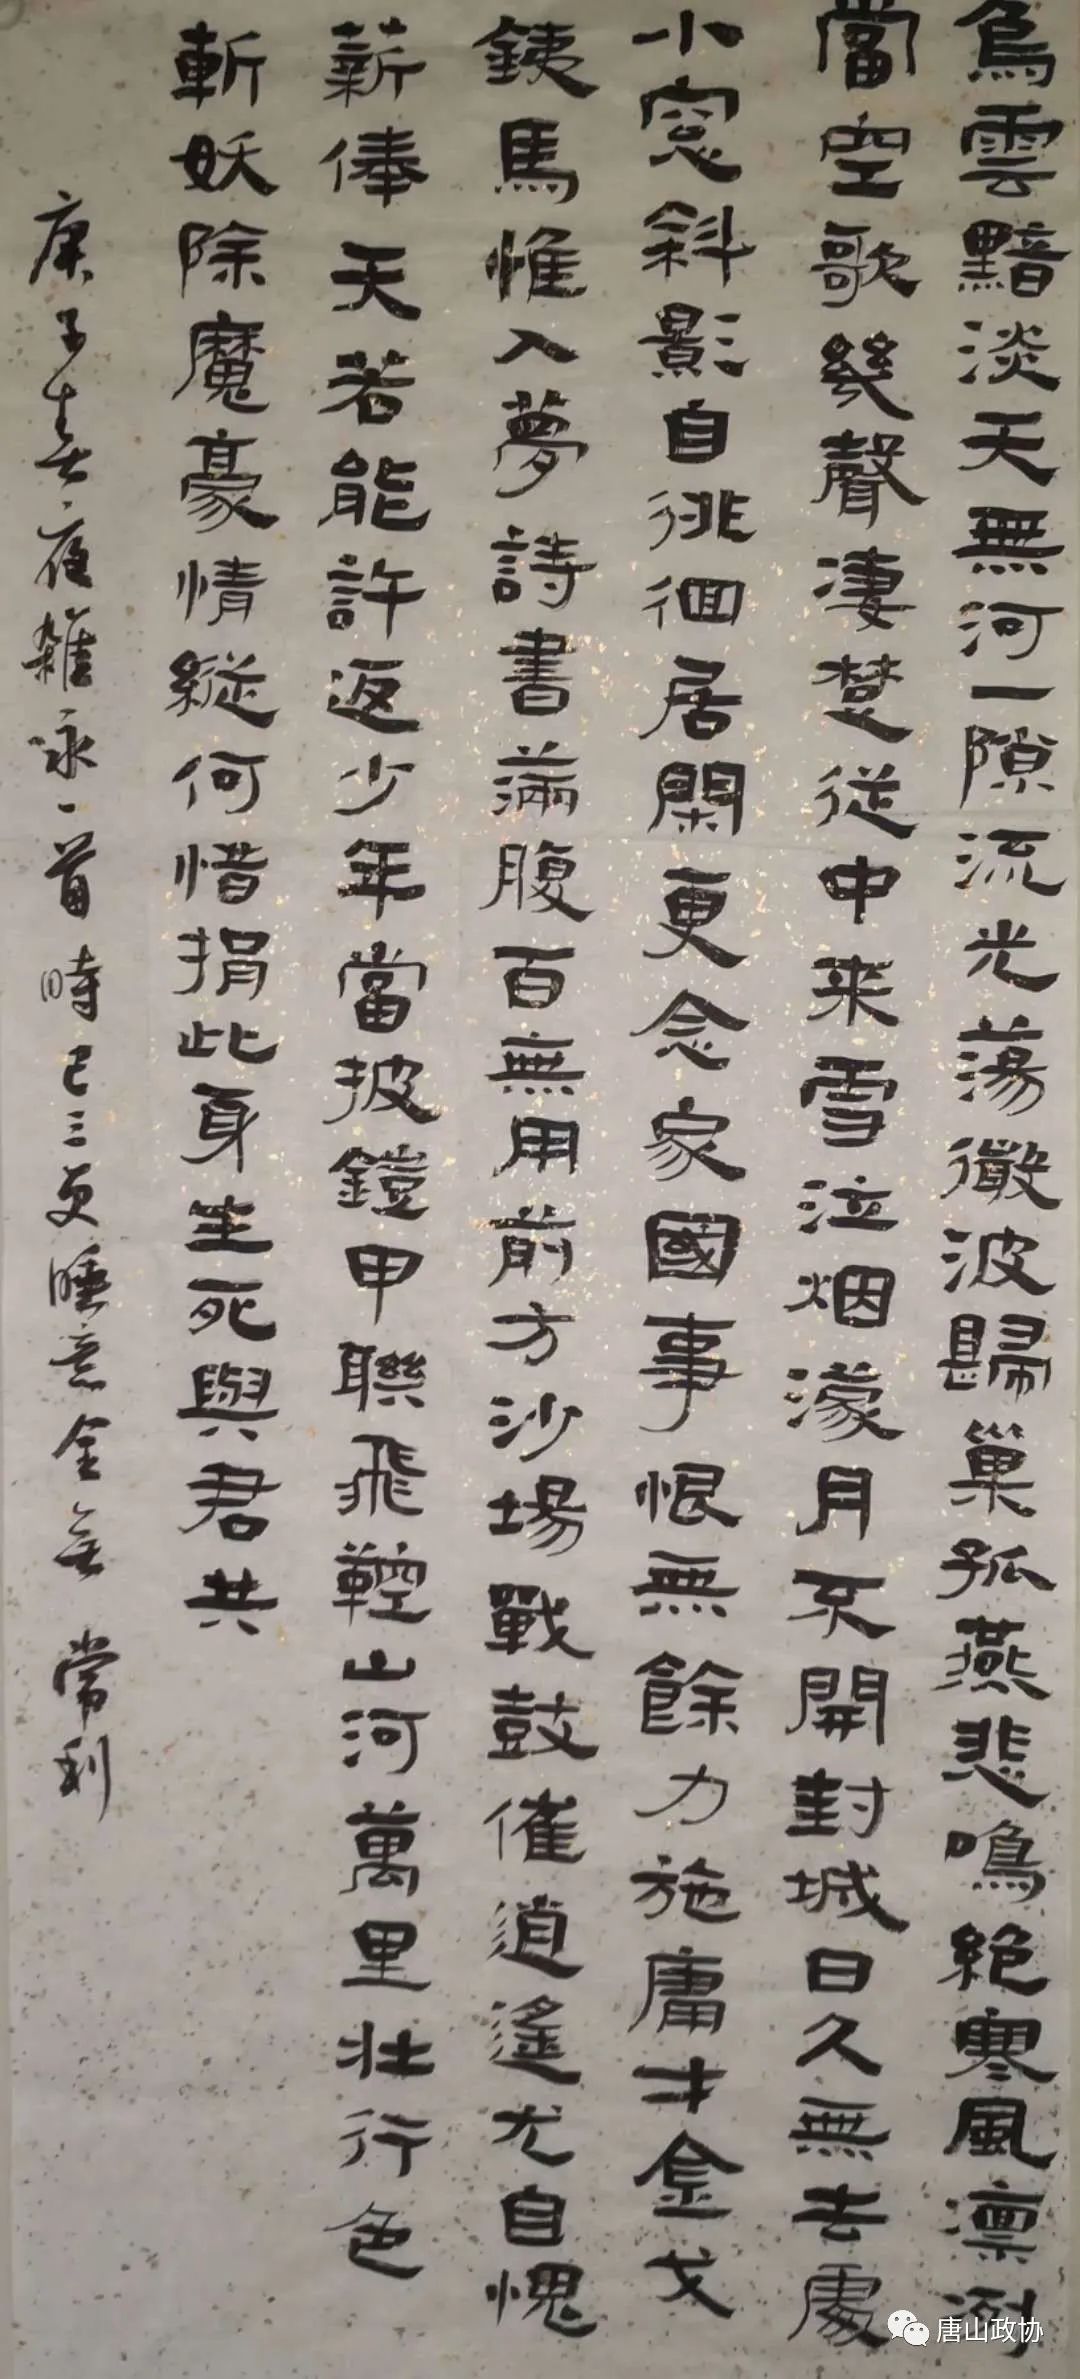 烏雲黯淡天無河一隙流光蕩微波歸巢孤燕悲鳴絕寒風凜冽
當空歌幾聲淒楚從中来雪泣烟濛月不開封城日久無去處
小窓斜影自徘徊居閑更念家國事恨無餘力施庸才金戈
鉄馬惟入夢詩書滿腹百無用前方沙場戰鼓催逍遙尤自愧
薪俸天若能許返少年當披鎧甲聯飛鞚山河萬里壯行色
斬妖除魔豪情縱何惜捐此身生死與君共
庚子春夜雜詠一首時已三更睡意全無 常利
唐山政协